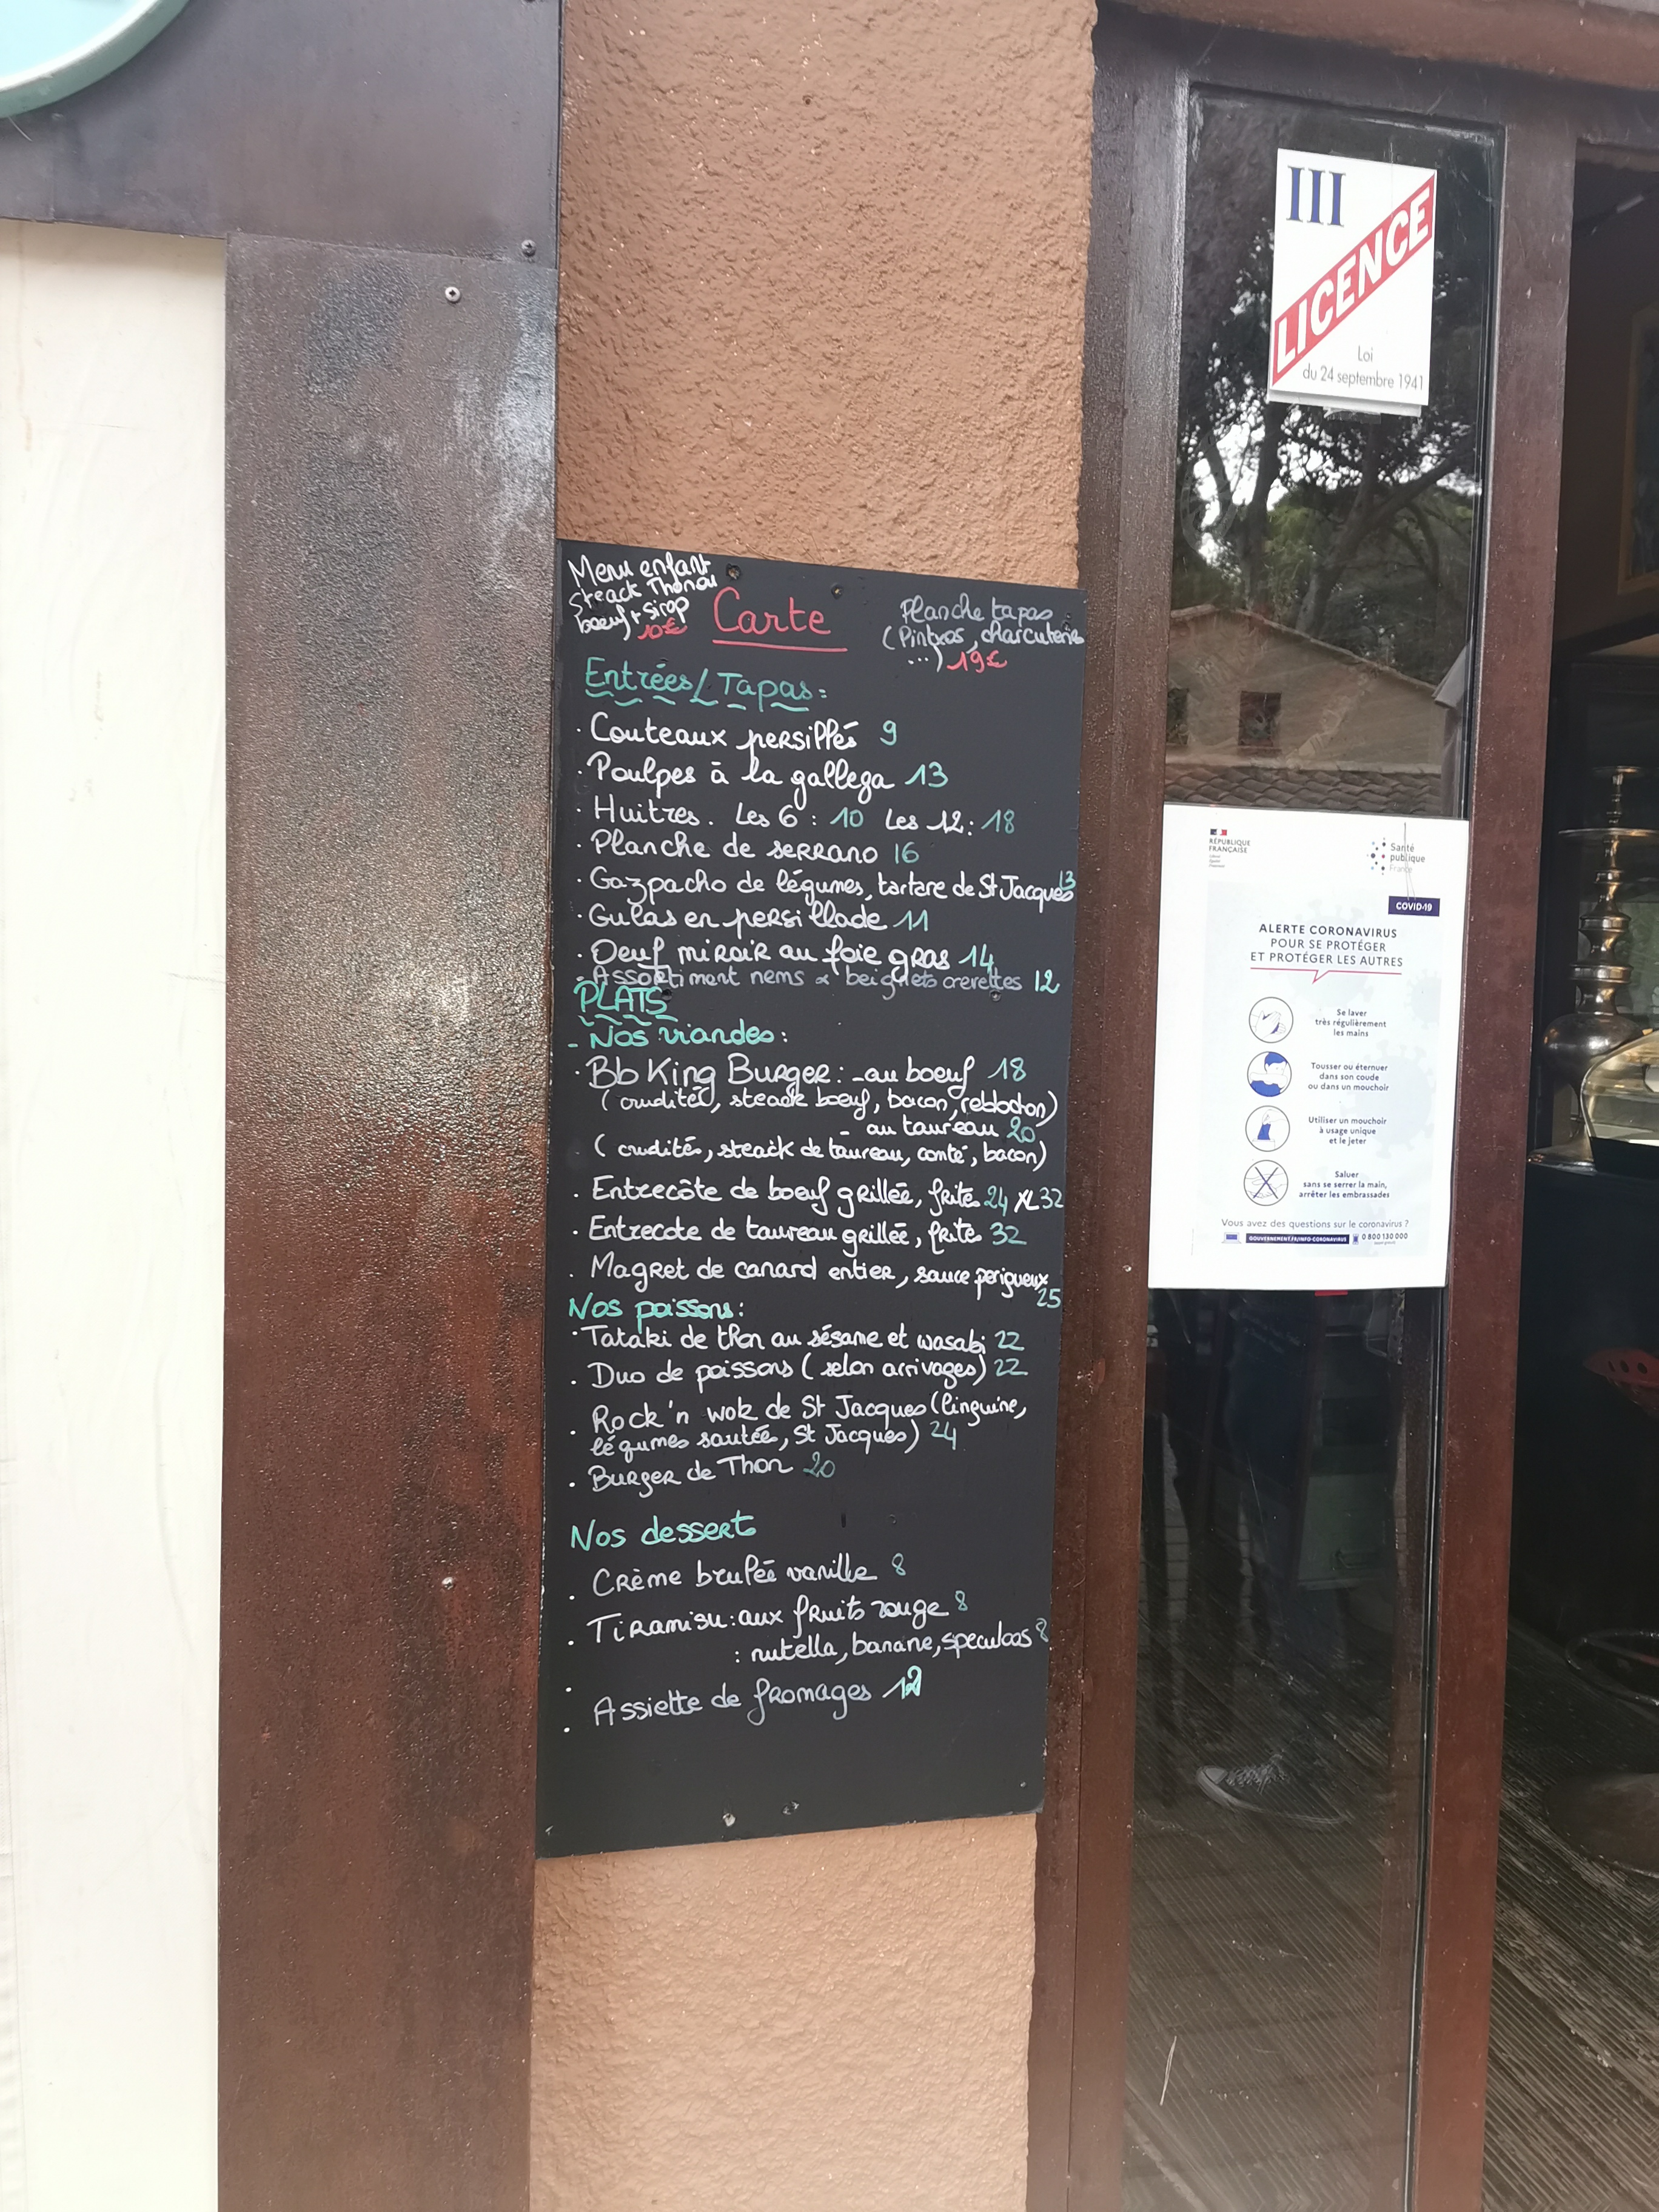 Menu enfant
Steack Thon ou
boeuf + sirop
10€
Carte
Planche tapas
(Pintxos, charcuterie
...) 19€
Entrées/Tapas:
· Couteaux persillés 9
· Poulpes à la gallega 13
· Huitres. Les 6 : 10 Les 12: 18
· Planche de serrano 16
· Gazpacho de légumes, tartare de St Jacques 13
· Gulas en persillade 11
· Oeuf miroir au foie gras 14
- Assortiment nems & beignets crevettes 12
PLATS
- Nos viandes:
· Bb King Burger: - au boeuf 18
(crudités, steack boeuf, bacon, reblochon)
- au taureau 20
(crudités, steack de taureau, comté, bacon)
· Entrecôte de boeuf grillée, frites 24 XL 32
· Entrecote de taureau grillée, frites 32
· Magret de canard entier, sauce perigueux
25
Nos poissons:
· Tataki de thon au sésame et wasabi 22
· Duo de poissons (selon arrivages) 22
· Rock'n wok de St Jacques (linguine,
légumes sautées, St Jacques) 24
· Burger de Thon 20
Nos desserts
· Crème brulée vanille 8
· Tiramisu: aux fruits rouge 8
: nutella, banane, speculoos 8
· Assiette de fromages 12
III
LICENCE
Loi
du 24 septembre 1941
RÉPUBLIQUE
FRANÇAISE
Santé
publique
France
COVID-19
ALERTE CORONAVIRUS
POUR SE PROTÉGER
ET PROTÉGER LES AUTRES
Se laver
très régulièrement
les mains
Tousser ou éternuer
dans son coude
ou dans un mouchoir
Utiliser un mouchoir
à usage unique
et le jeter
Saluer
sans se serrer la main,
arrêter les embrassades
Vous avez des questions sur le coronavirus ?
GOUVERNEMENT.FR/INFO-CORONAVIRUS 0 800 130 000